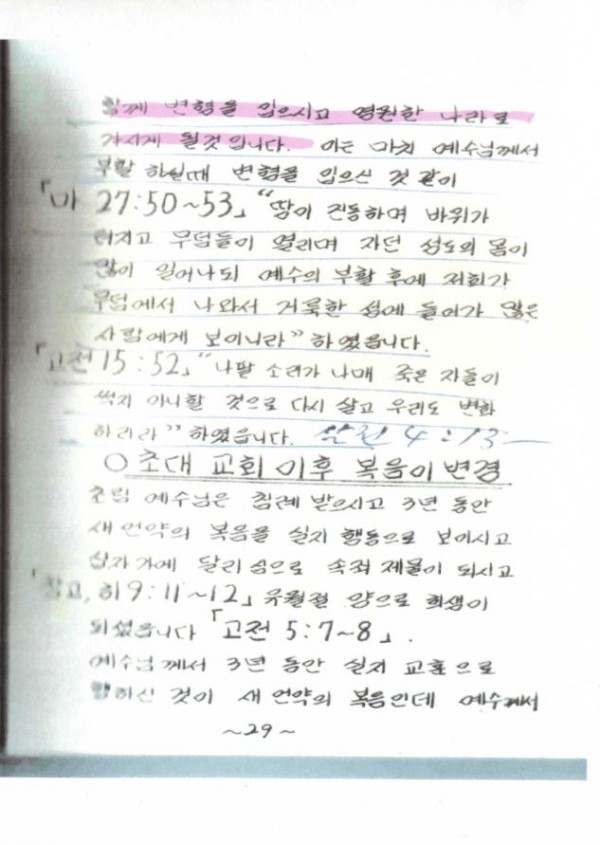 함께 변형을 입으시고 영원한 나라로
가시게 될것입니다. 이는 마치 예수님께서
부활 하실때 변형을 입으신 것 같이
「마 27:50~53」 "땅이 진동하며 바위가
터지고 무덤들이 열리며 자던 성도의 몸이
많이 일어나되 예수의 부활 후에 저희가
무덤에서 나와서 거룩한 성에 들어가 많은
사람에게 보이니라" 하였읍니다.
「고전 15:52」 "나팔 소리가 나매 죽은 자들이
썩지 아니할 것으로 다시 살고 우리도 변화
하리라" 하였읍니다. 살전 4:13—
○ 초대 교회 이후 복음이 변경
초림 예수님은 침례 받으시고 3년 동안
새 언약의 복음을 실지 행동으로 보이시고
십자가에 달리심으로 속죄 제물이 되시고
「참고, 히 9:11~12」 유월절 양으로 희생이
되셨읍니다 「고전 5:7~8」.
예수님께서 3년 동안 실지 교훈으로
행하신 것이 새 언약의 복음인데 예수께서
~29~